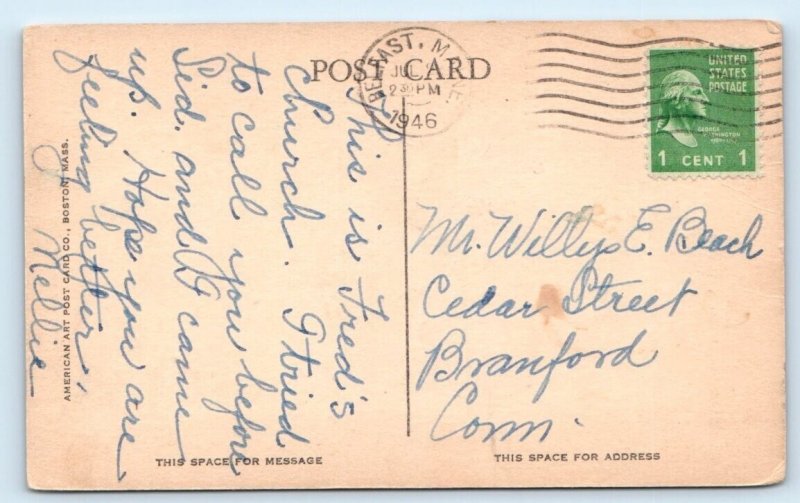 POST CARD
BELFAST, M
JU
2 30 PM
1946
UNITED
STATES
POSTAGE
GEORGE
WASHINGTON
1 CENT 1
This is Fred's
Church. I tried
to call you before
Sid. and I came
up. Hope you are
feeling better,
Nellie
AMERICAN ART POST CARD CO., BOSTON, MASS.
Mr. Willys E. Beach
Cedar Street
Branford
Conn.
THIS SPACE FOR MESSAGE
THIS SPACE FOR ADDRESS